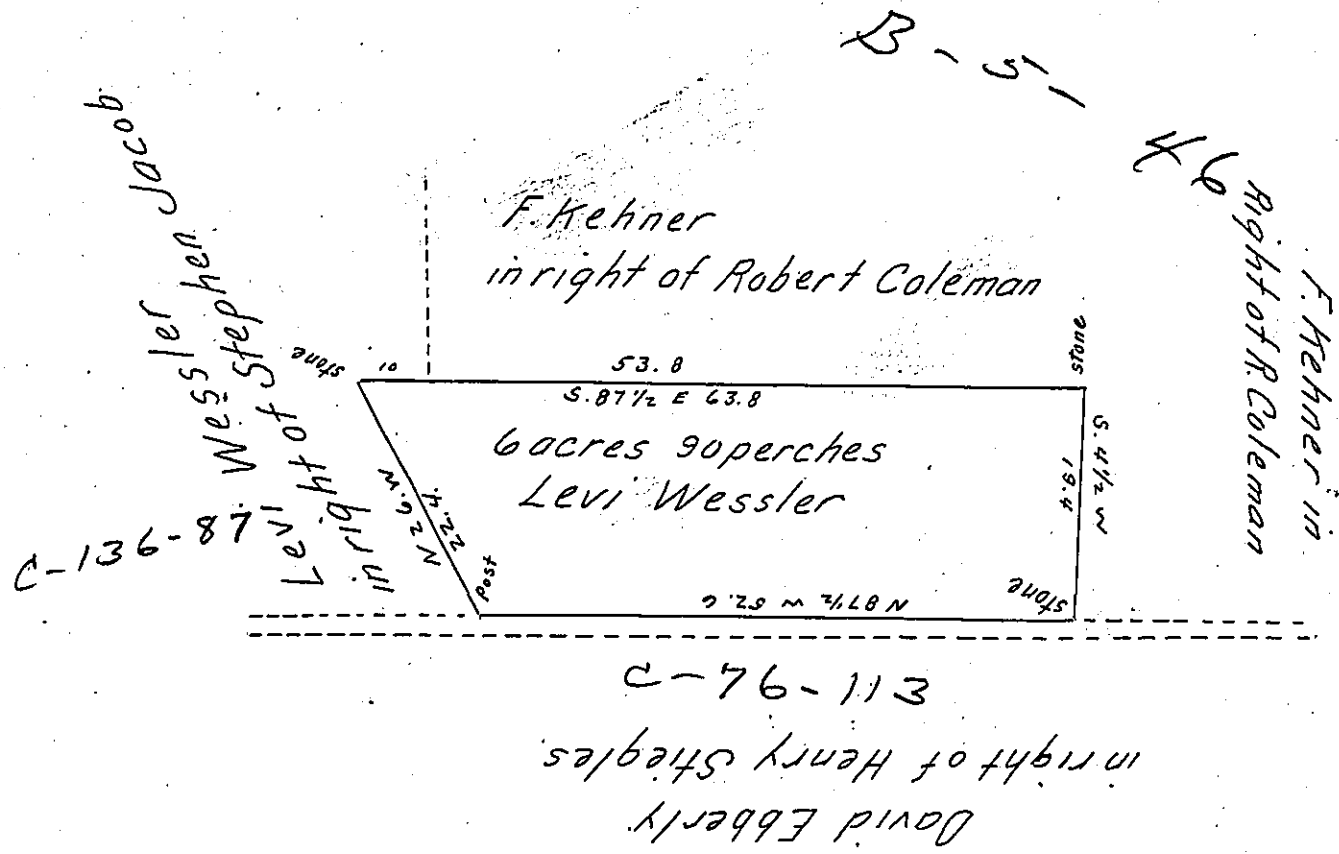 B-51
46
F. Kehner
in right of Robert Coleman
F. Kehner in
Right of R. Coleman
Levi Wessler
in right of Stephen Jacob
C-136-87
stone
10
53.8
stone
S. 87 1/2 E 63.8
6 acres 90 perches
Levi Wessler
N 26. W
22.4.
Post
S. 4 1/2 W
19.4
stone
N 87 1/2 W 52.6
C-76-113
David Ebberly
in right of Henry Stiegles